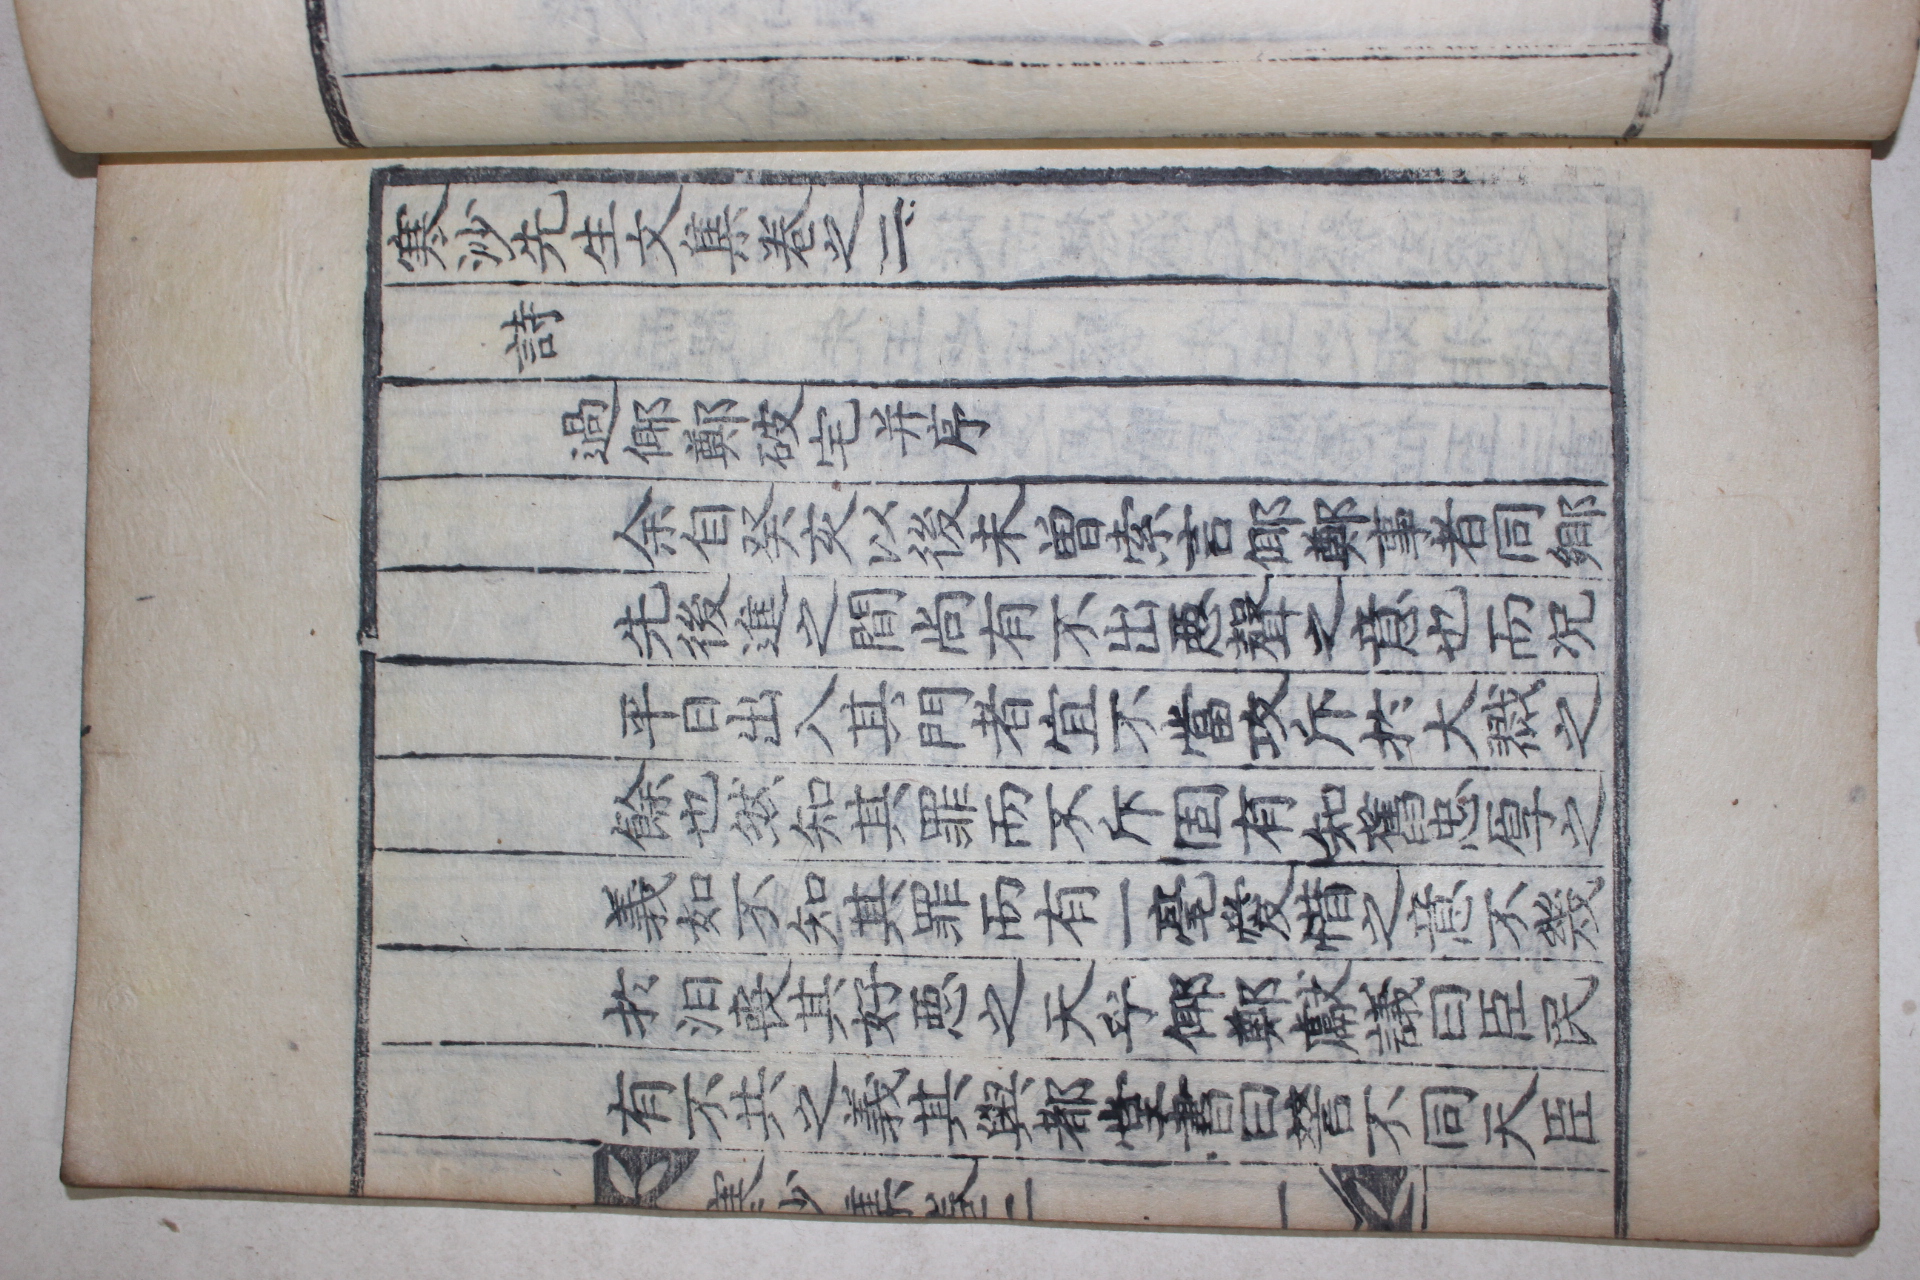 寒沙先生文集卷之二
詩
過鄭破宅并序
余自癸亥以後未曾索言鄭事者同鄉
先後進之間尚有不出惡聲之意也而况
平日出入其門者宜不當攻斥於大戮之
餘也然知其罪而不斥固有知舊忠厚之
義如不知其罪而有一毫愛惜之意不幾
於汨喪其好惡之天乎鄭獻議曰臣民
有不共之義其與都堂書曰誓不同天臣
寒沙集卷二
一